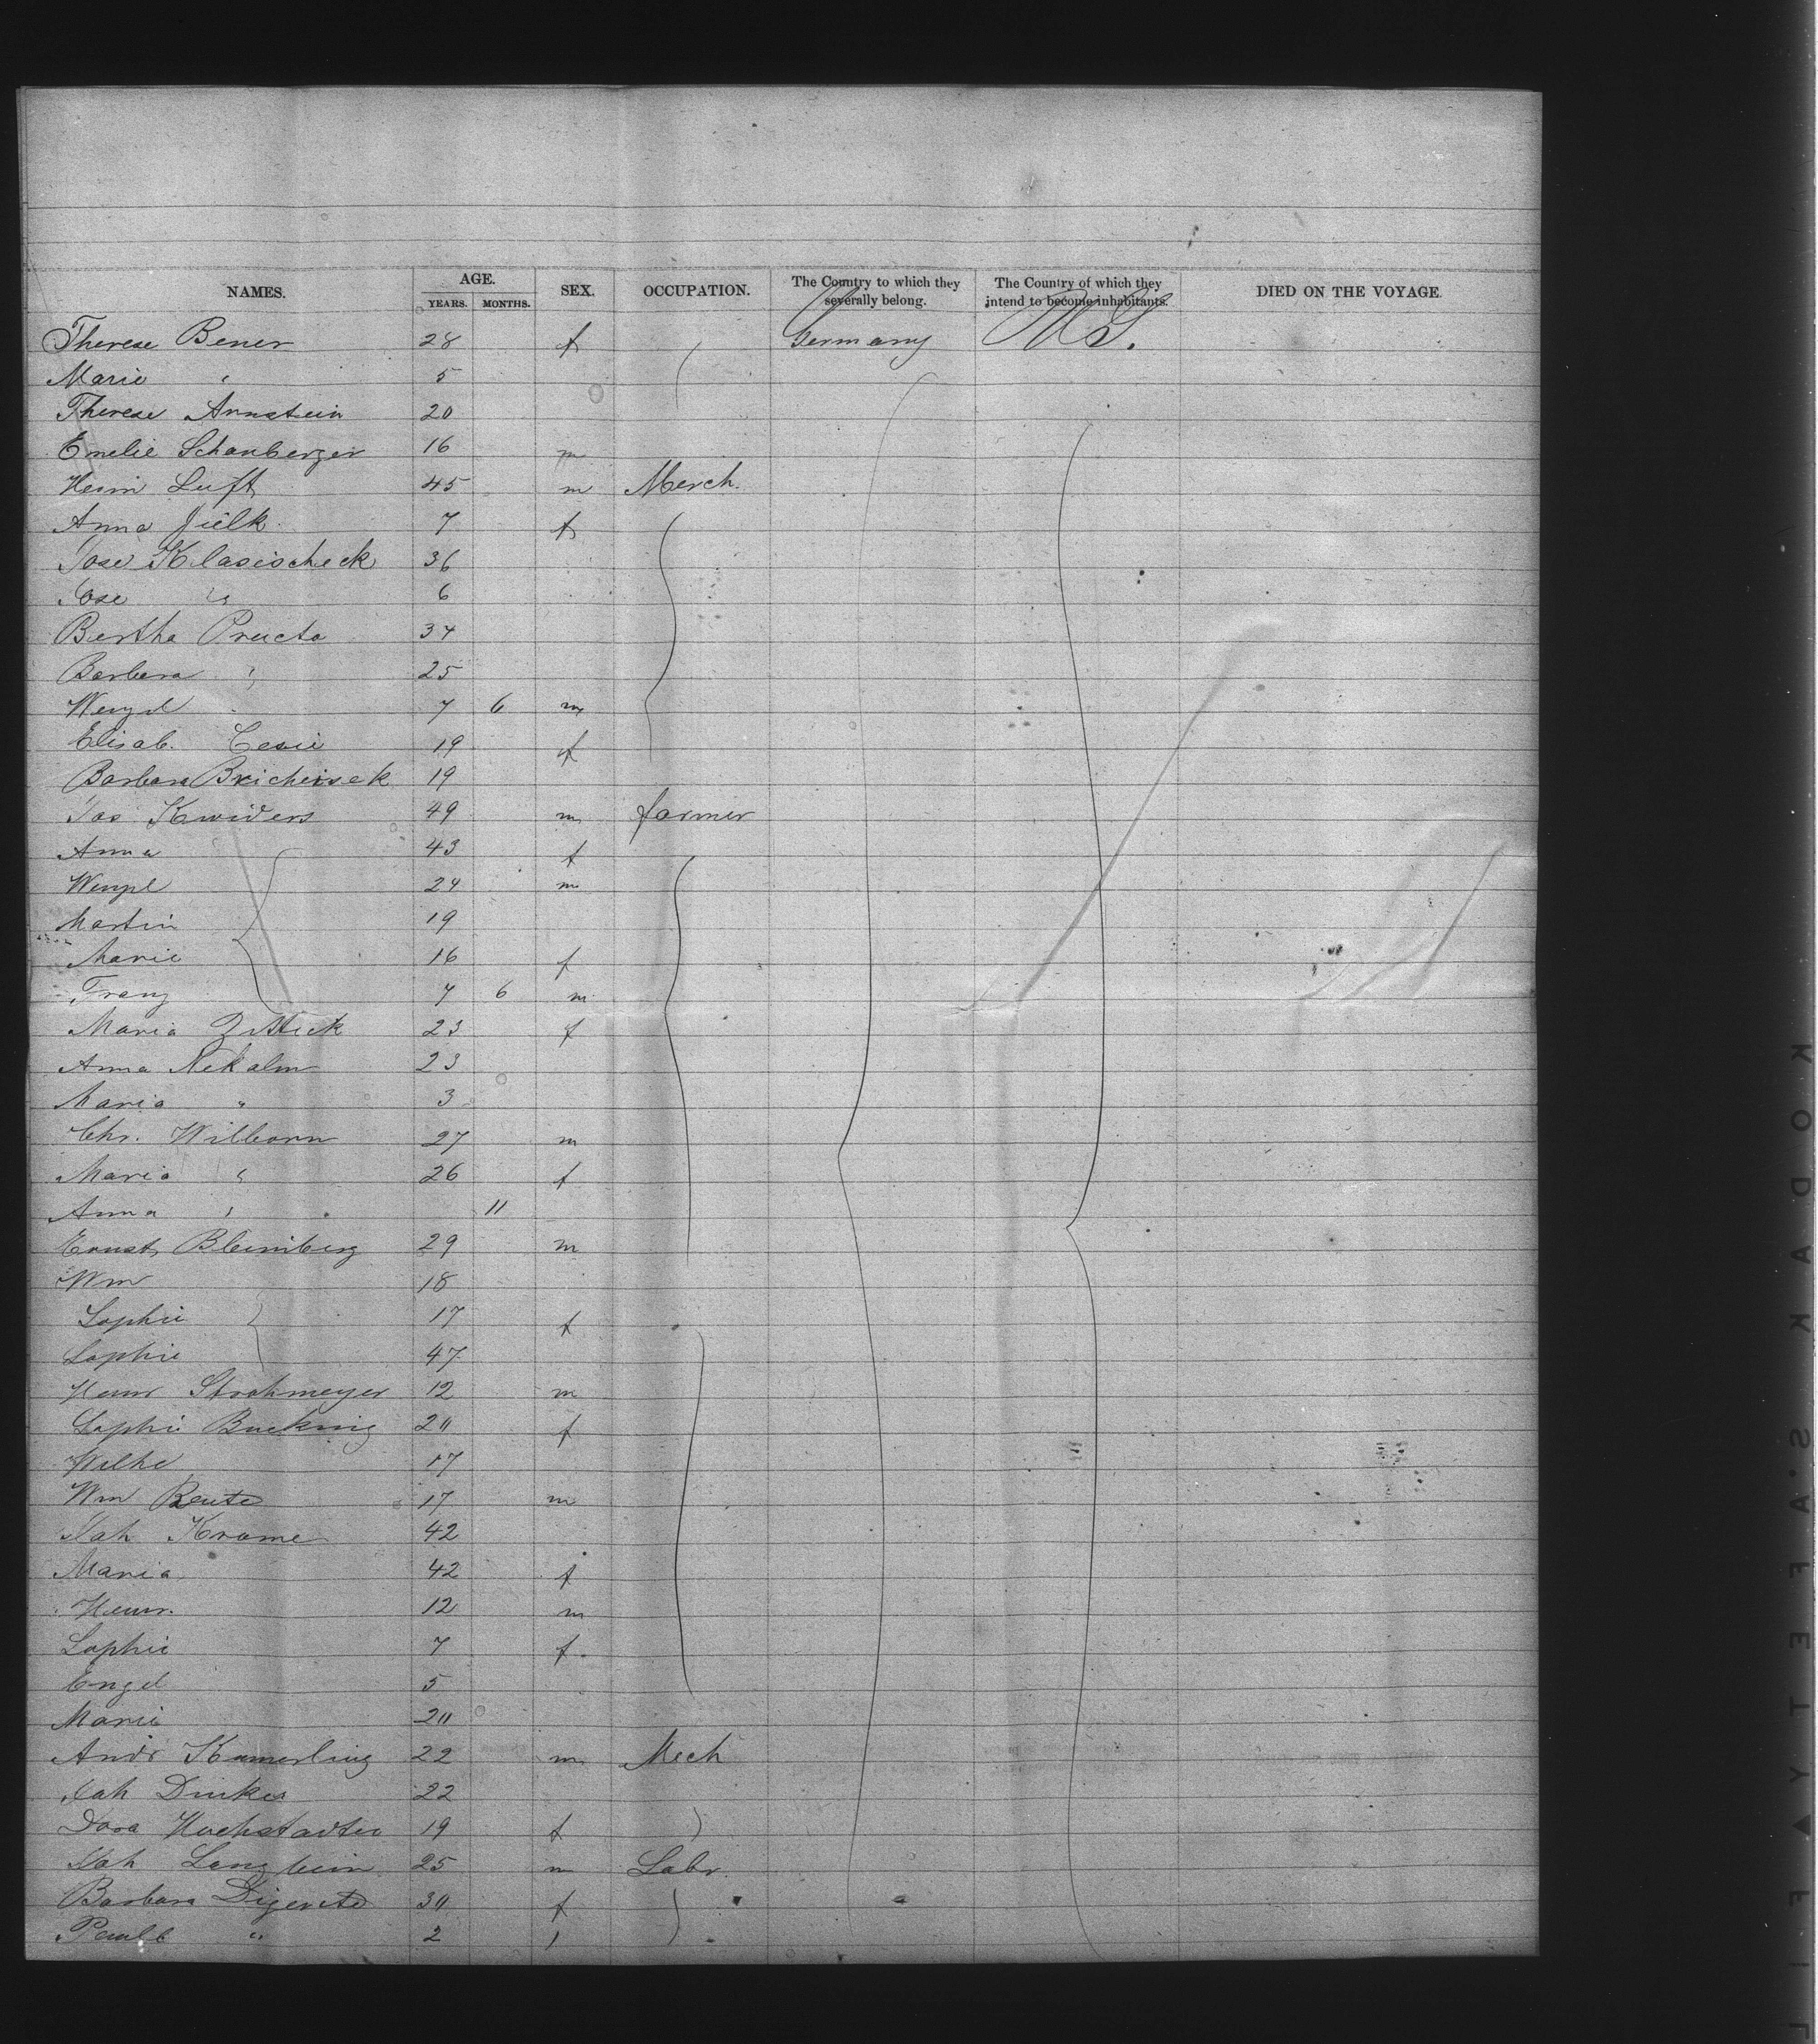 NAMES. AGE. SEX. OCCUPATION. The Country to which they severally belong. The Country of which they intend to become inhabitants. DIED ON THE VOYAGE.
YEARS. MONTHS.
Therese Bener 28 f Germany U S.
Marie " 5
Therese Arnstein 20
Emelie Schauberger 16 m
Heinr Luft 45 m Merch.
Anna Jielk 7 f
Jose Klasischeck 36
Jose " 6
Bertha Pructa 34
Barbara " 25
Wenzel 7 6 m
Elisab. Cesie 19 f
Barbara Bricheisek 19
Jos Kwiders 49 m farmer
Anna 43 f
Wenzel 24 m
Martin 19
Marie 16 f
Franz 7 6 m
Maria Zittick 23 f
Anna Nekalm 23
Maria " 3
Chr. Wilborn 27 m
Maria " 26 f
Anna " 11
Ernst Bleimberg 29 m
Wm 18
Sophie 17 f
Sophie 47
Heinr Strohmeyer 12 m
Sophie Bucking 20 f
Wilhe 17
Wm Beute 17 m
Joh Krame 42
Maria 42 f
Heinr. 12 m
Sophie 7 f
Engel 5
Marie 20
Andr Kamerling 22 m Mech
Joh Dinkes 22
Dora Hochstadter 19 f
Joh Langbein 25 m Labr
Barbara Digerete 30 f
2
KODAK S.A.FETY